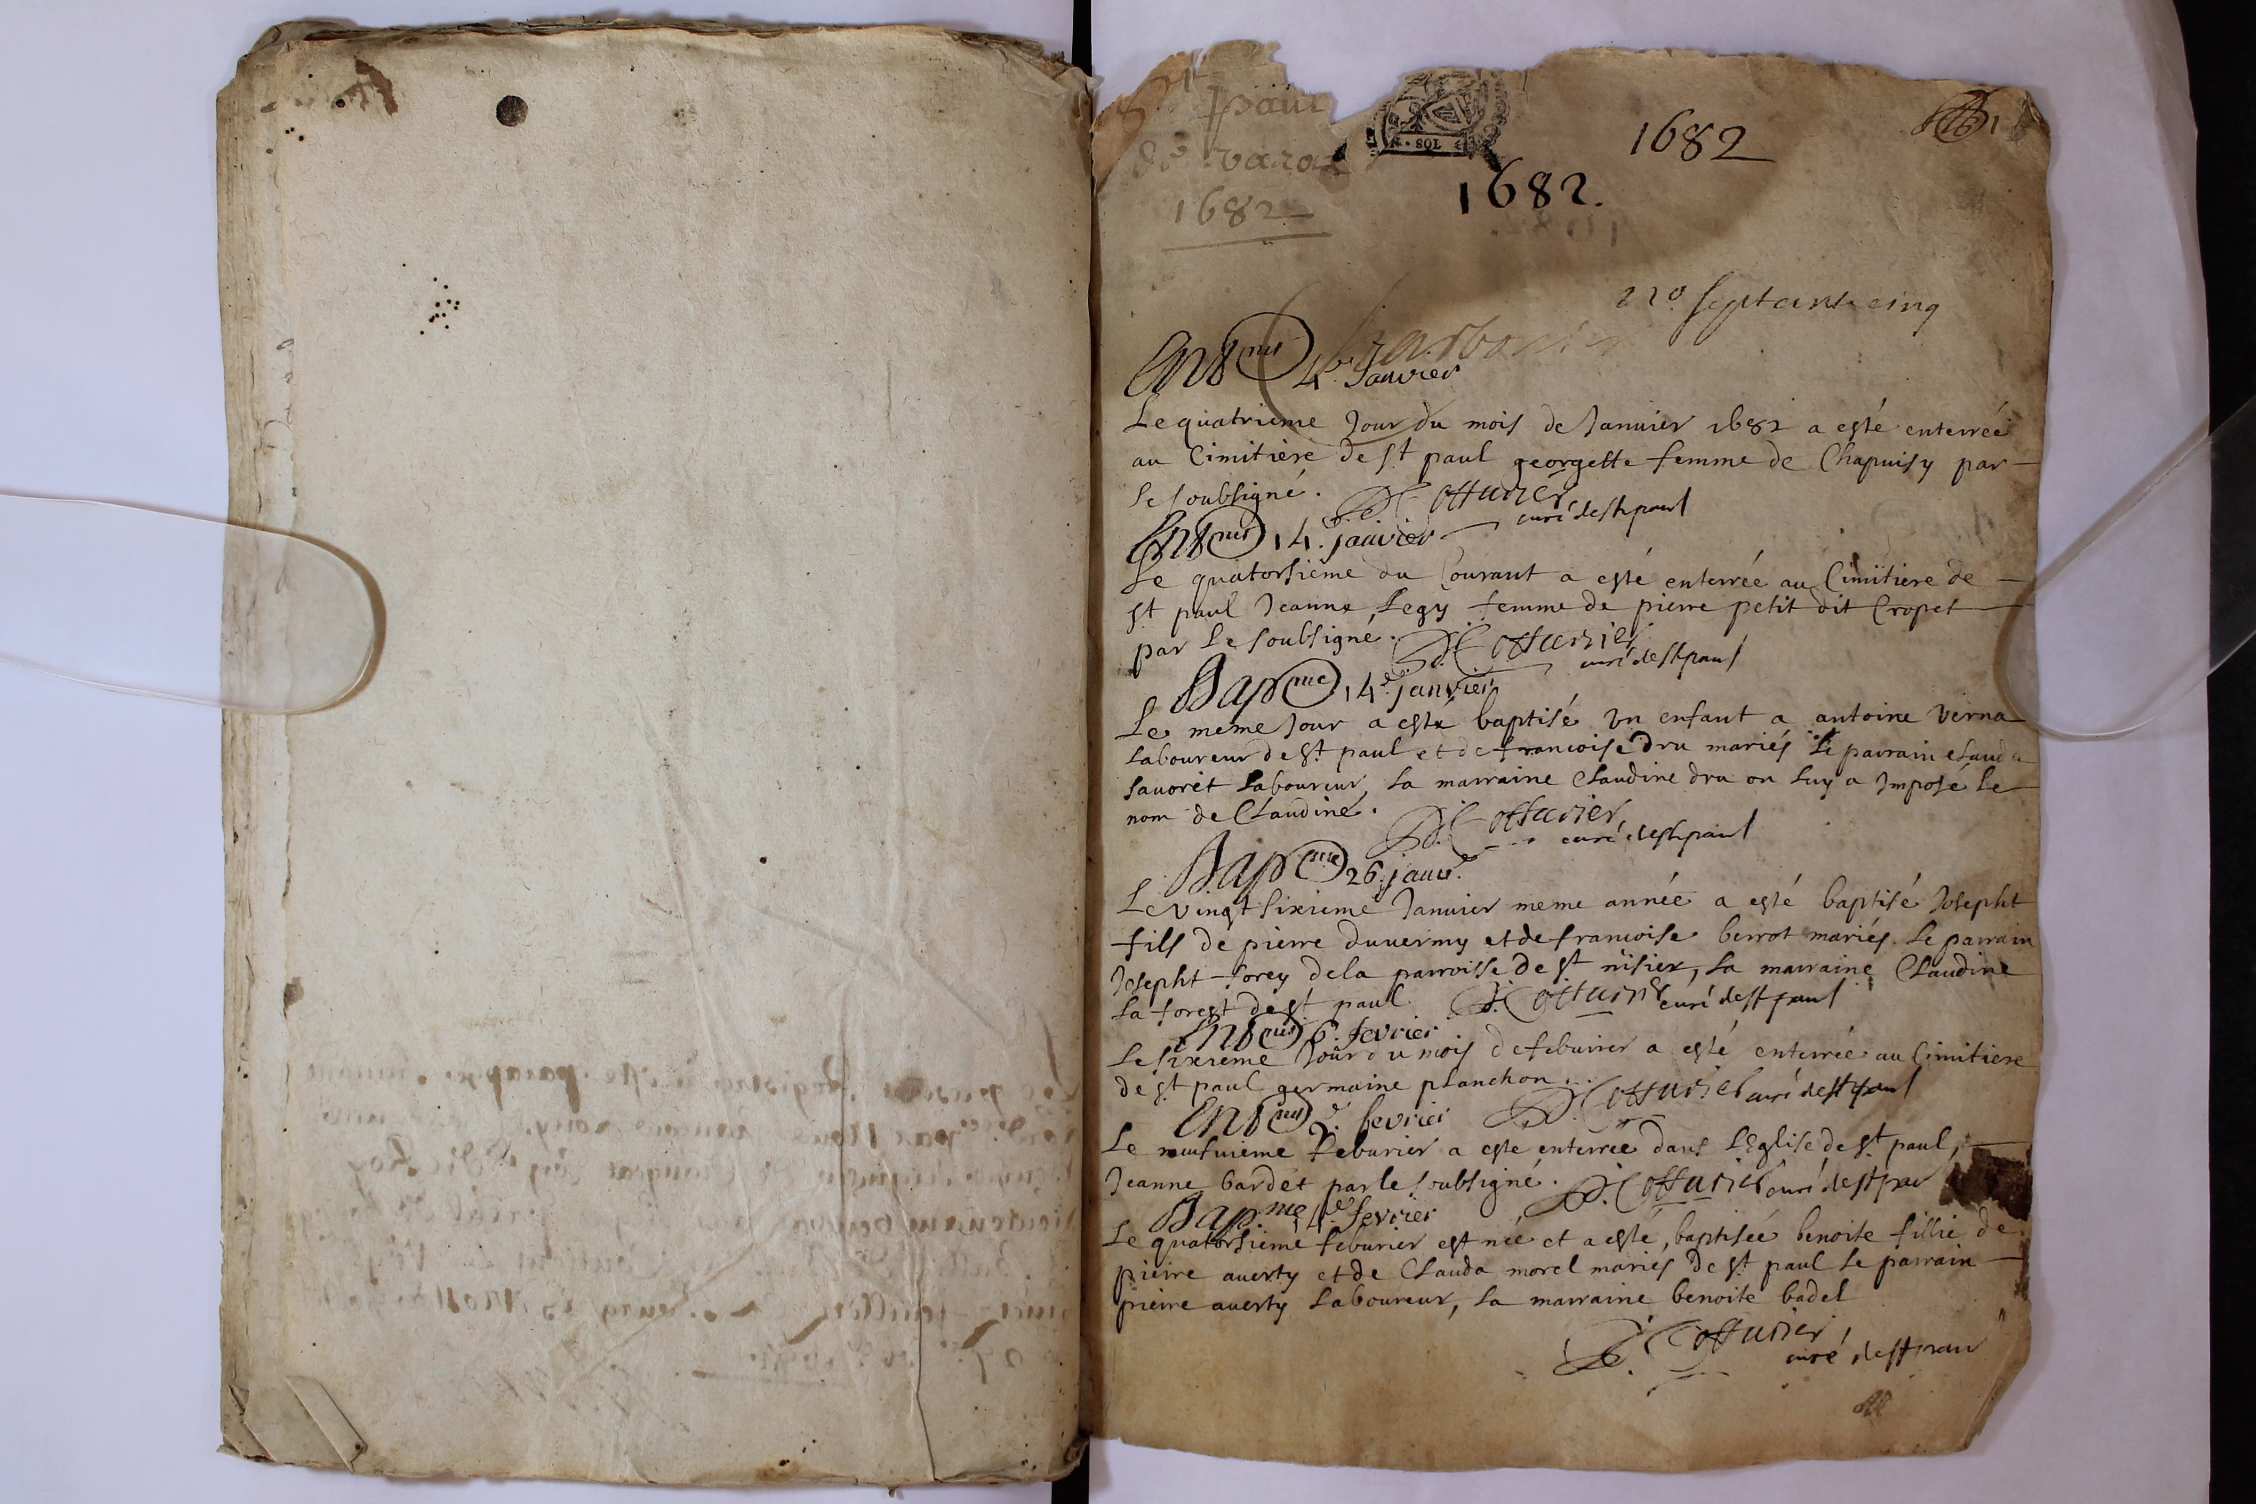 St paul
de varax
1682
SOL
1682
1682.
no. septante cinq
Ent.mt 4e. Janvier
Le quatrieme Jour du mois de Januier 1682 a esté enterreé
au Cimitiere de St paul georgette femme de Chapuisy par
le soubsigné. Cottarier
curé de St paul
Ent.mt 14e. janvier
Le quatorsieme du Courant a esté enterrée au Cimitiere de
St paul Jeanne Legy femme de pierre petit dit Cropet
par Le soubsigné. Cottarier
curé de St paul
Bap.me 14e janvier
Le meme Jour a esté baptisé Vn enfant a antoine Verna
Laboureur de St paul et de francoise dru mariés Le parrain clauda
sauorét Laboureur, La marraine Claudine dru on Luy a Imposé Le
nom de Claudine. Cottarier
curé de St paul
Bap.me 26. janv.
Le vingt sixieme Januier meme année a esté baptisé Josepht
fils de pierre duuermy et de francoise berrot mariés. Le parrain
Josepht forey de la parroisse de St nisier, La marraine Claudine
La forest de St paul. Cottarier curé de St paul
Ent.mt 6e. fevrier
Le sixieme Jour du mois de feburier a esté enterrée au Cimitiere
de St paul germaine planchon. Cottarier curé de St paul
Ent.mt 9e. fevrier
Le neufuieme feburier a este enterrée dans L'Eglise de St paul,
Jeanne bardet par le soubsigné. Cottarier curé de St pau
Bap.me 14e fevrier
Le quatorsieme feburier est née et a esté, baptisée benoite fillie de
pierre auerty et de Clauda morel mariés de St paul Le parrain
pierre auerty Laboureur, La marraine benoite badel
Cottarier
curé de St pau